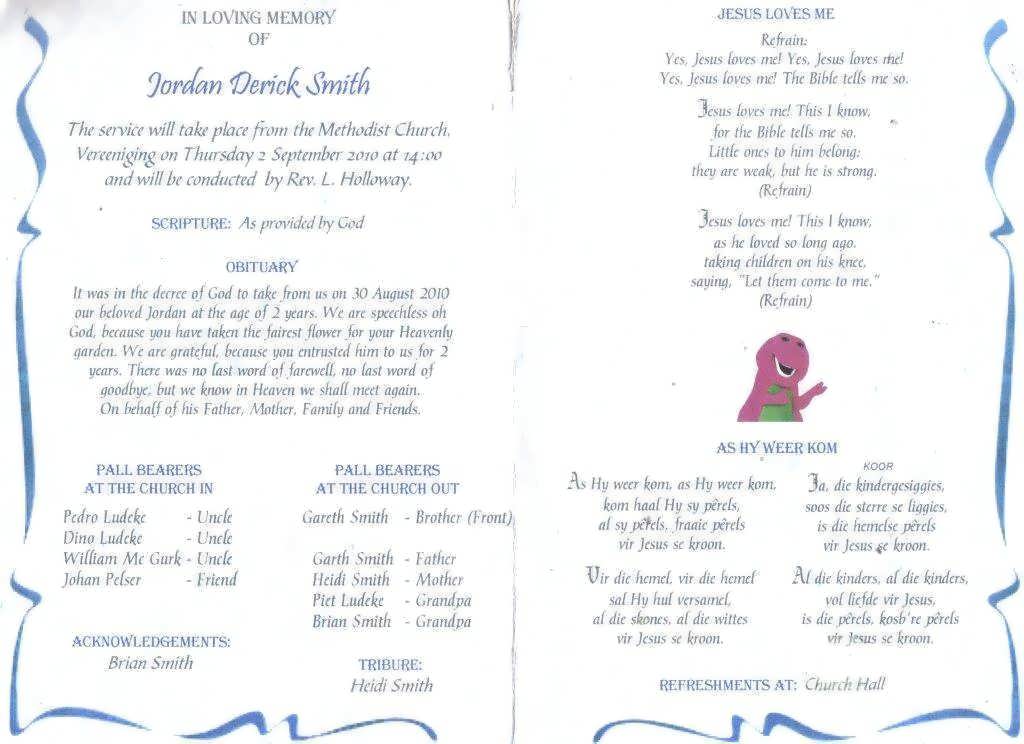 IN LOVING MEMORY
OF
Jordan Derick Smith
The service will take place from the Methodist Church,
Vereeniging on Thursday 2 September 2010 at 14:00
and will be conducted by Rev. L. Holloway.
SCRIPTURE: As provided by God
OBITUARY
It was in the decree of God to take from us on 30 August 2010
our beloved Jordan at the age of 2 years. We are speechless oh
God, because you have taken the fairest flower for your Heavenly
garden. We are grateful, because you entrusted him to us for 2
years. There was no last word of farewell, no last word of
goodbye, but we know in Heaven we shall meet again.
On behalf of his Father, Mother, Family and Friends.
PALL BEARERS
AT THE CHURCH IN
Pedro Ludeke - Uncle
Dino Ludeke - Uncle
William Mc Gurk - Uncle
Johan Pelser - Friend
ACKNOWLEDGEMENTS:
Brian Smith
PALL BEARERS
AT THE CHURCH OUT
Gareth Smith - Brother (Front)
Garth Smith - Father
Heidi Smith - Mother
Piet Ludeke - Grandpa
Brian Smith - Grandpa
TRIBURE:
Heidi Smith
JESUS LOVES ME
Refrain:
Yes, Jesus loves me! Yes, Jesus loves me!
Yes, Jesus loves me! The Bible tells me so.
Jesus loves me! This I know,
for the Bible tells me so.
Little ones to him belong;
they are weak, but he is strong.
(Refrain)
Jesus loves me! This I know,
as he loved so long ago,
taking children on his knee,
saying, "Let them come to me."
(Refrain)
AS HY WEER KOM
As Hy weer kom, as Hy weer kom,
kom haal Hy sy pêrels,
al sy pêrels, fraaie pêrels
vir Jesus se kroon.
Vir die hemel, vir die hemel
sal Hy hul versamel,
al die skones, al die wittes
vir Jesus se kroon.
KOOR
Ja, die kindergesiggies,
soos die sterre se liggies,
is die hemelse pêrels
vir Jesus se kroon.
Al die kinders, al die kinders,
vol liefde vir Jesus,
is die pêrels, kosb're pêrels
vir Jesus se kroon.
REFRESHMENTS AT: Church Hall